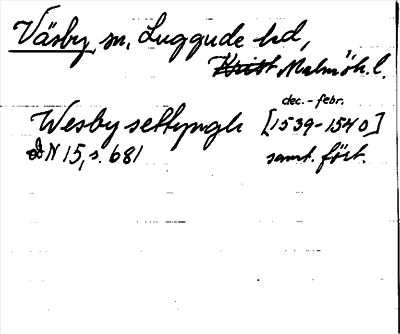 Väsby, sn, Luggude hd,
Malmöh. l.
dec. - febr.
Wesby settyngh [1539-1540]
N 15, s. 681 samt. fört.